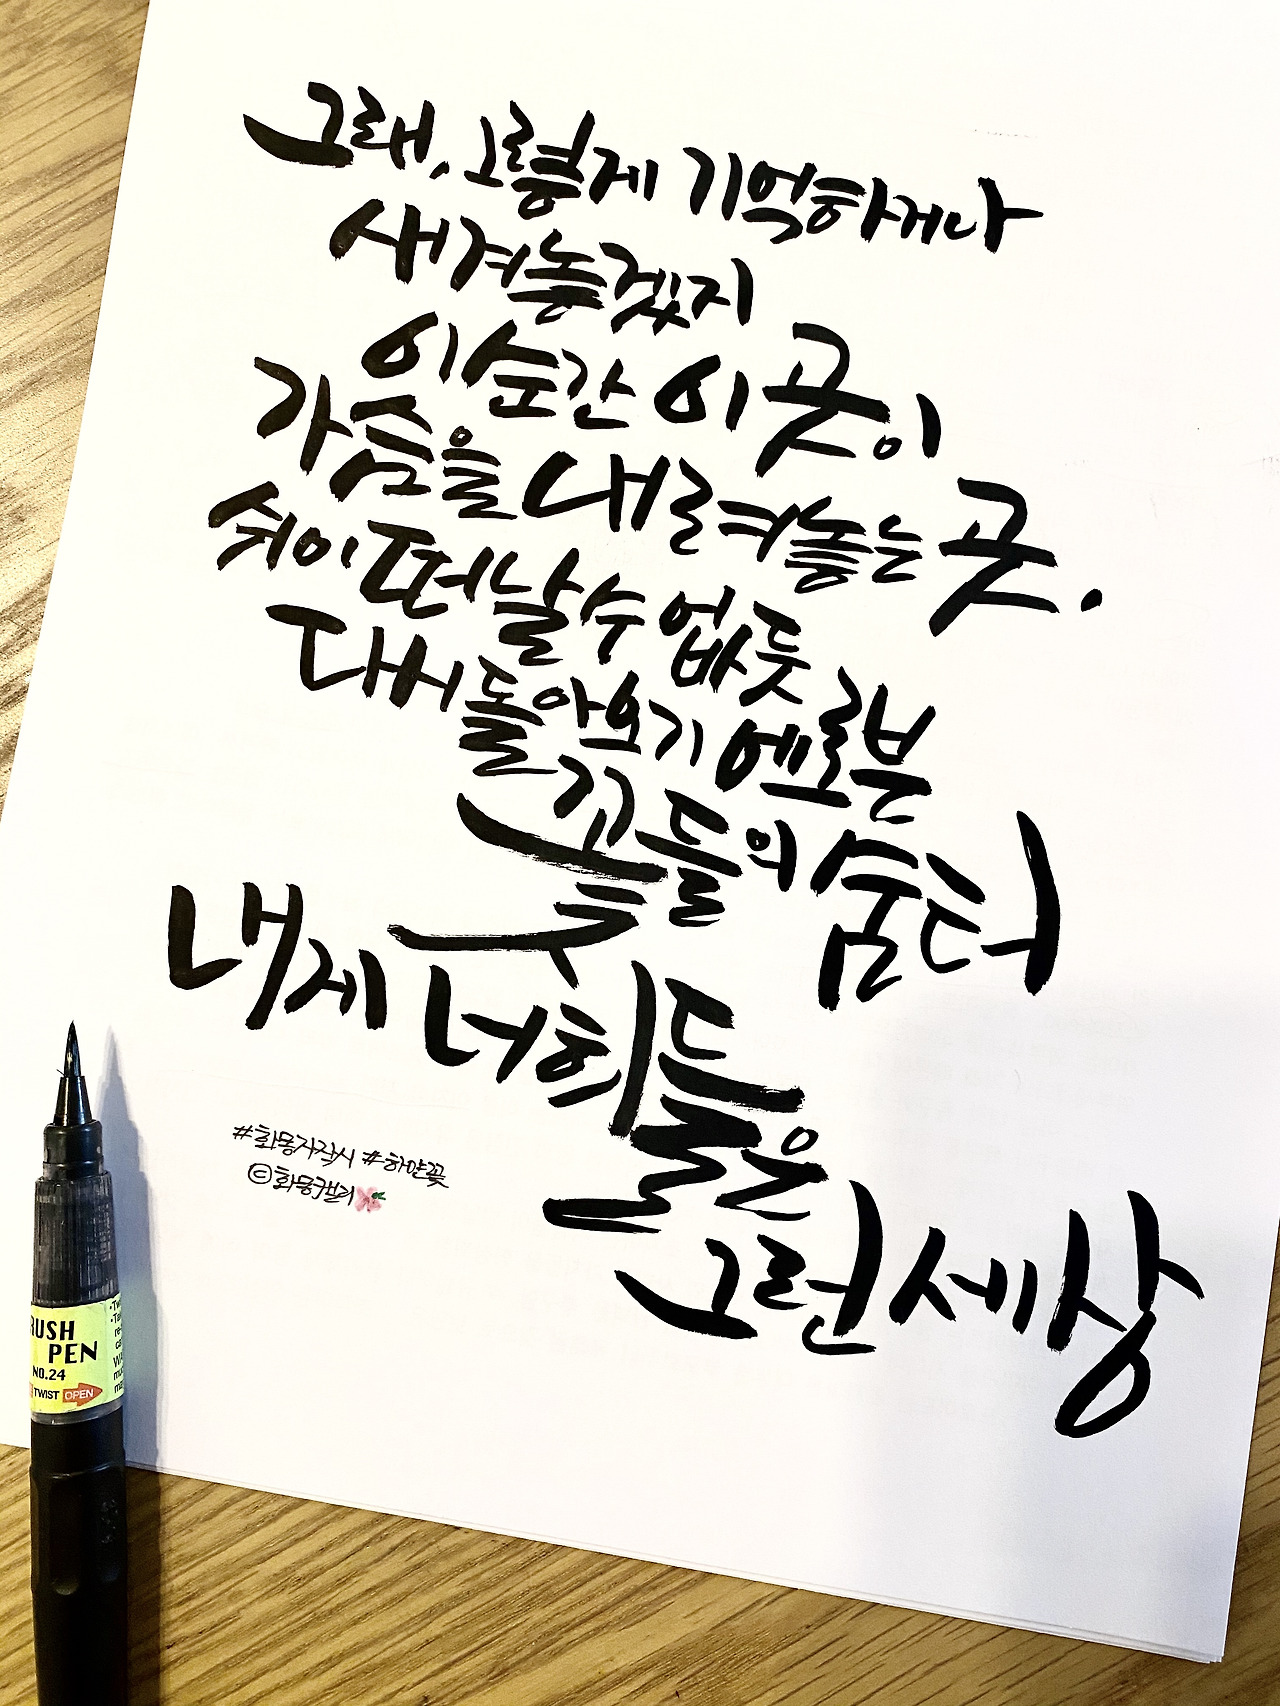 그래, 그렇게 기억하거나
새겨놓겠지
이순간 이 곳이
가슴을 내려놓는 곳.
쉬이 떠날 수 없듯
다시 돌아오기 에로븐
꽃들의 숨터
내게 너희들은
그런 세상
#화몽자작시 #하얀꽃
©화몽캘리
RUSH
PEN
NO.24
TWIST OPEN